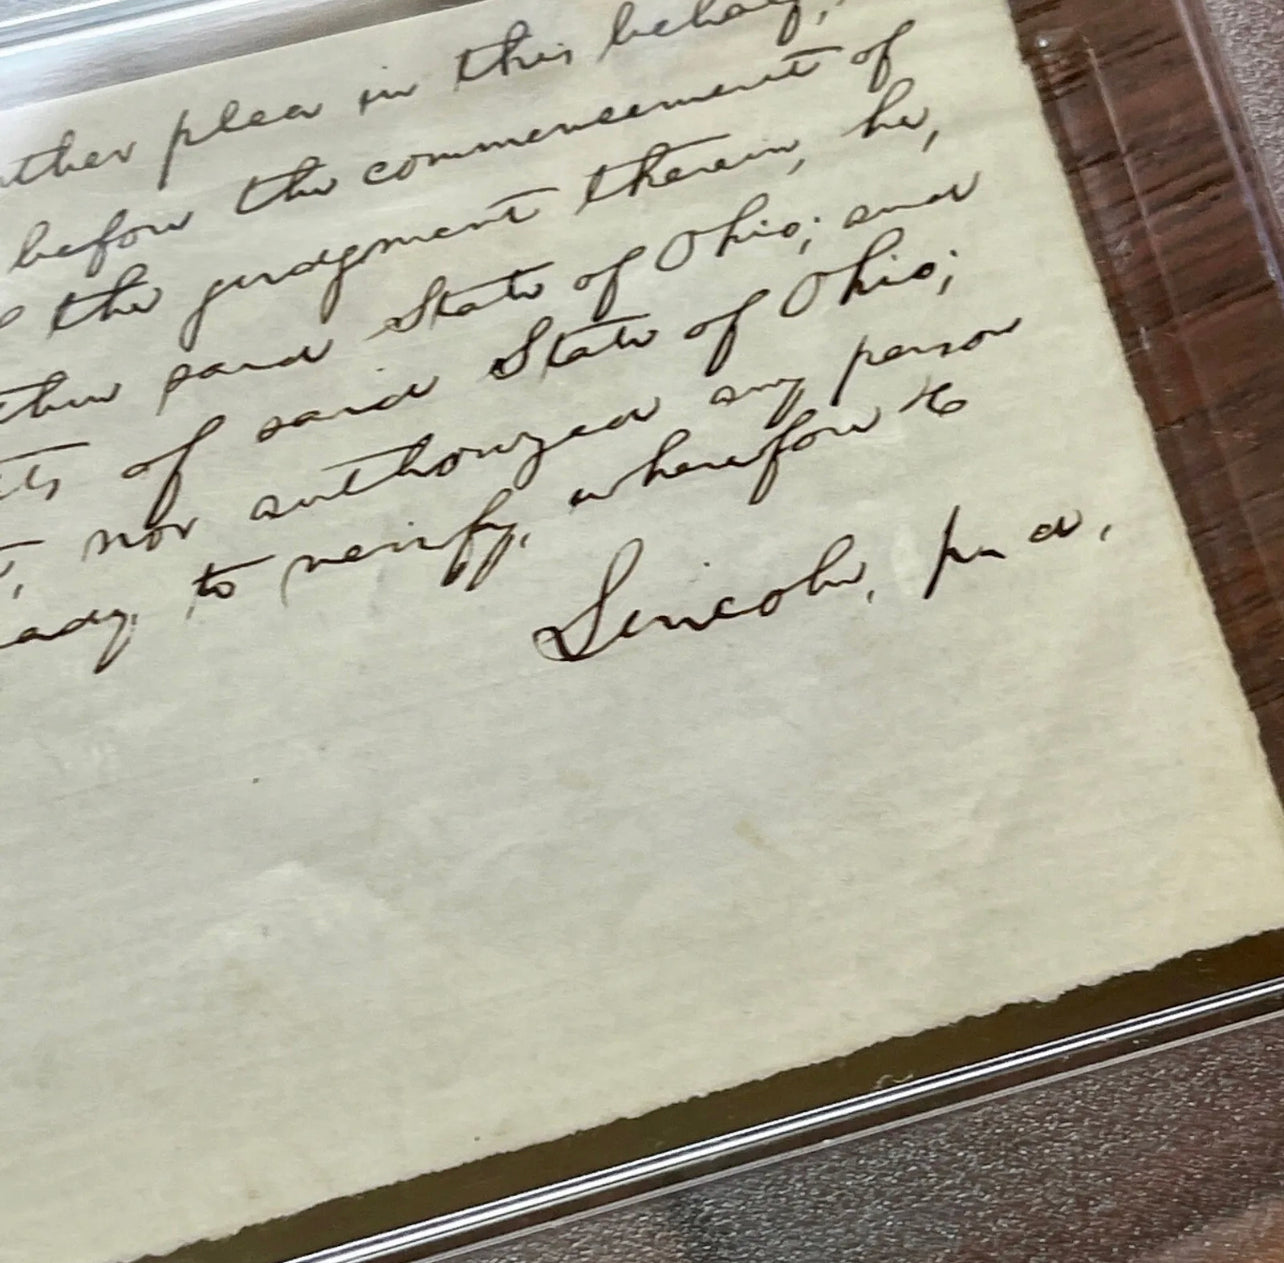 other plea in this behalf,
before the commencement of
the judgment therein, he,
said State of Ohio; and
of said State of Ohio;
nor authorized any person
ready to verify, wherefore &c
Lincoln, p. d.